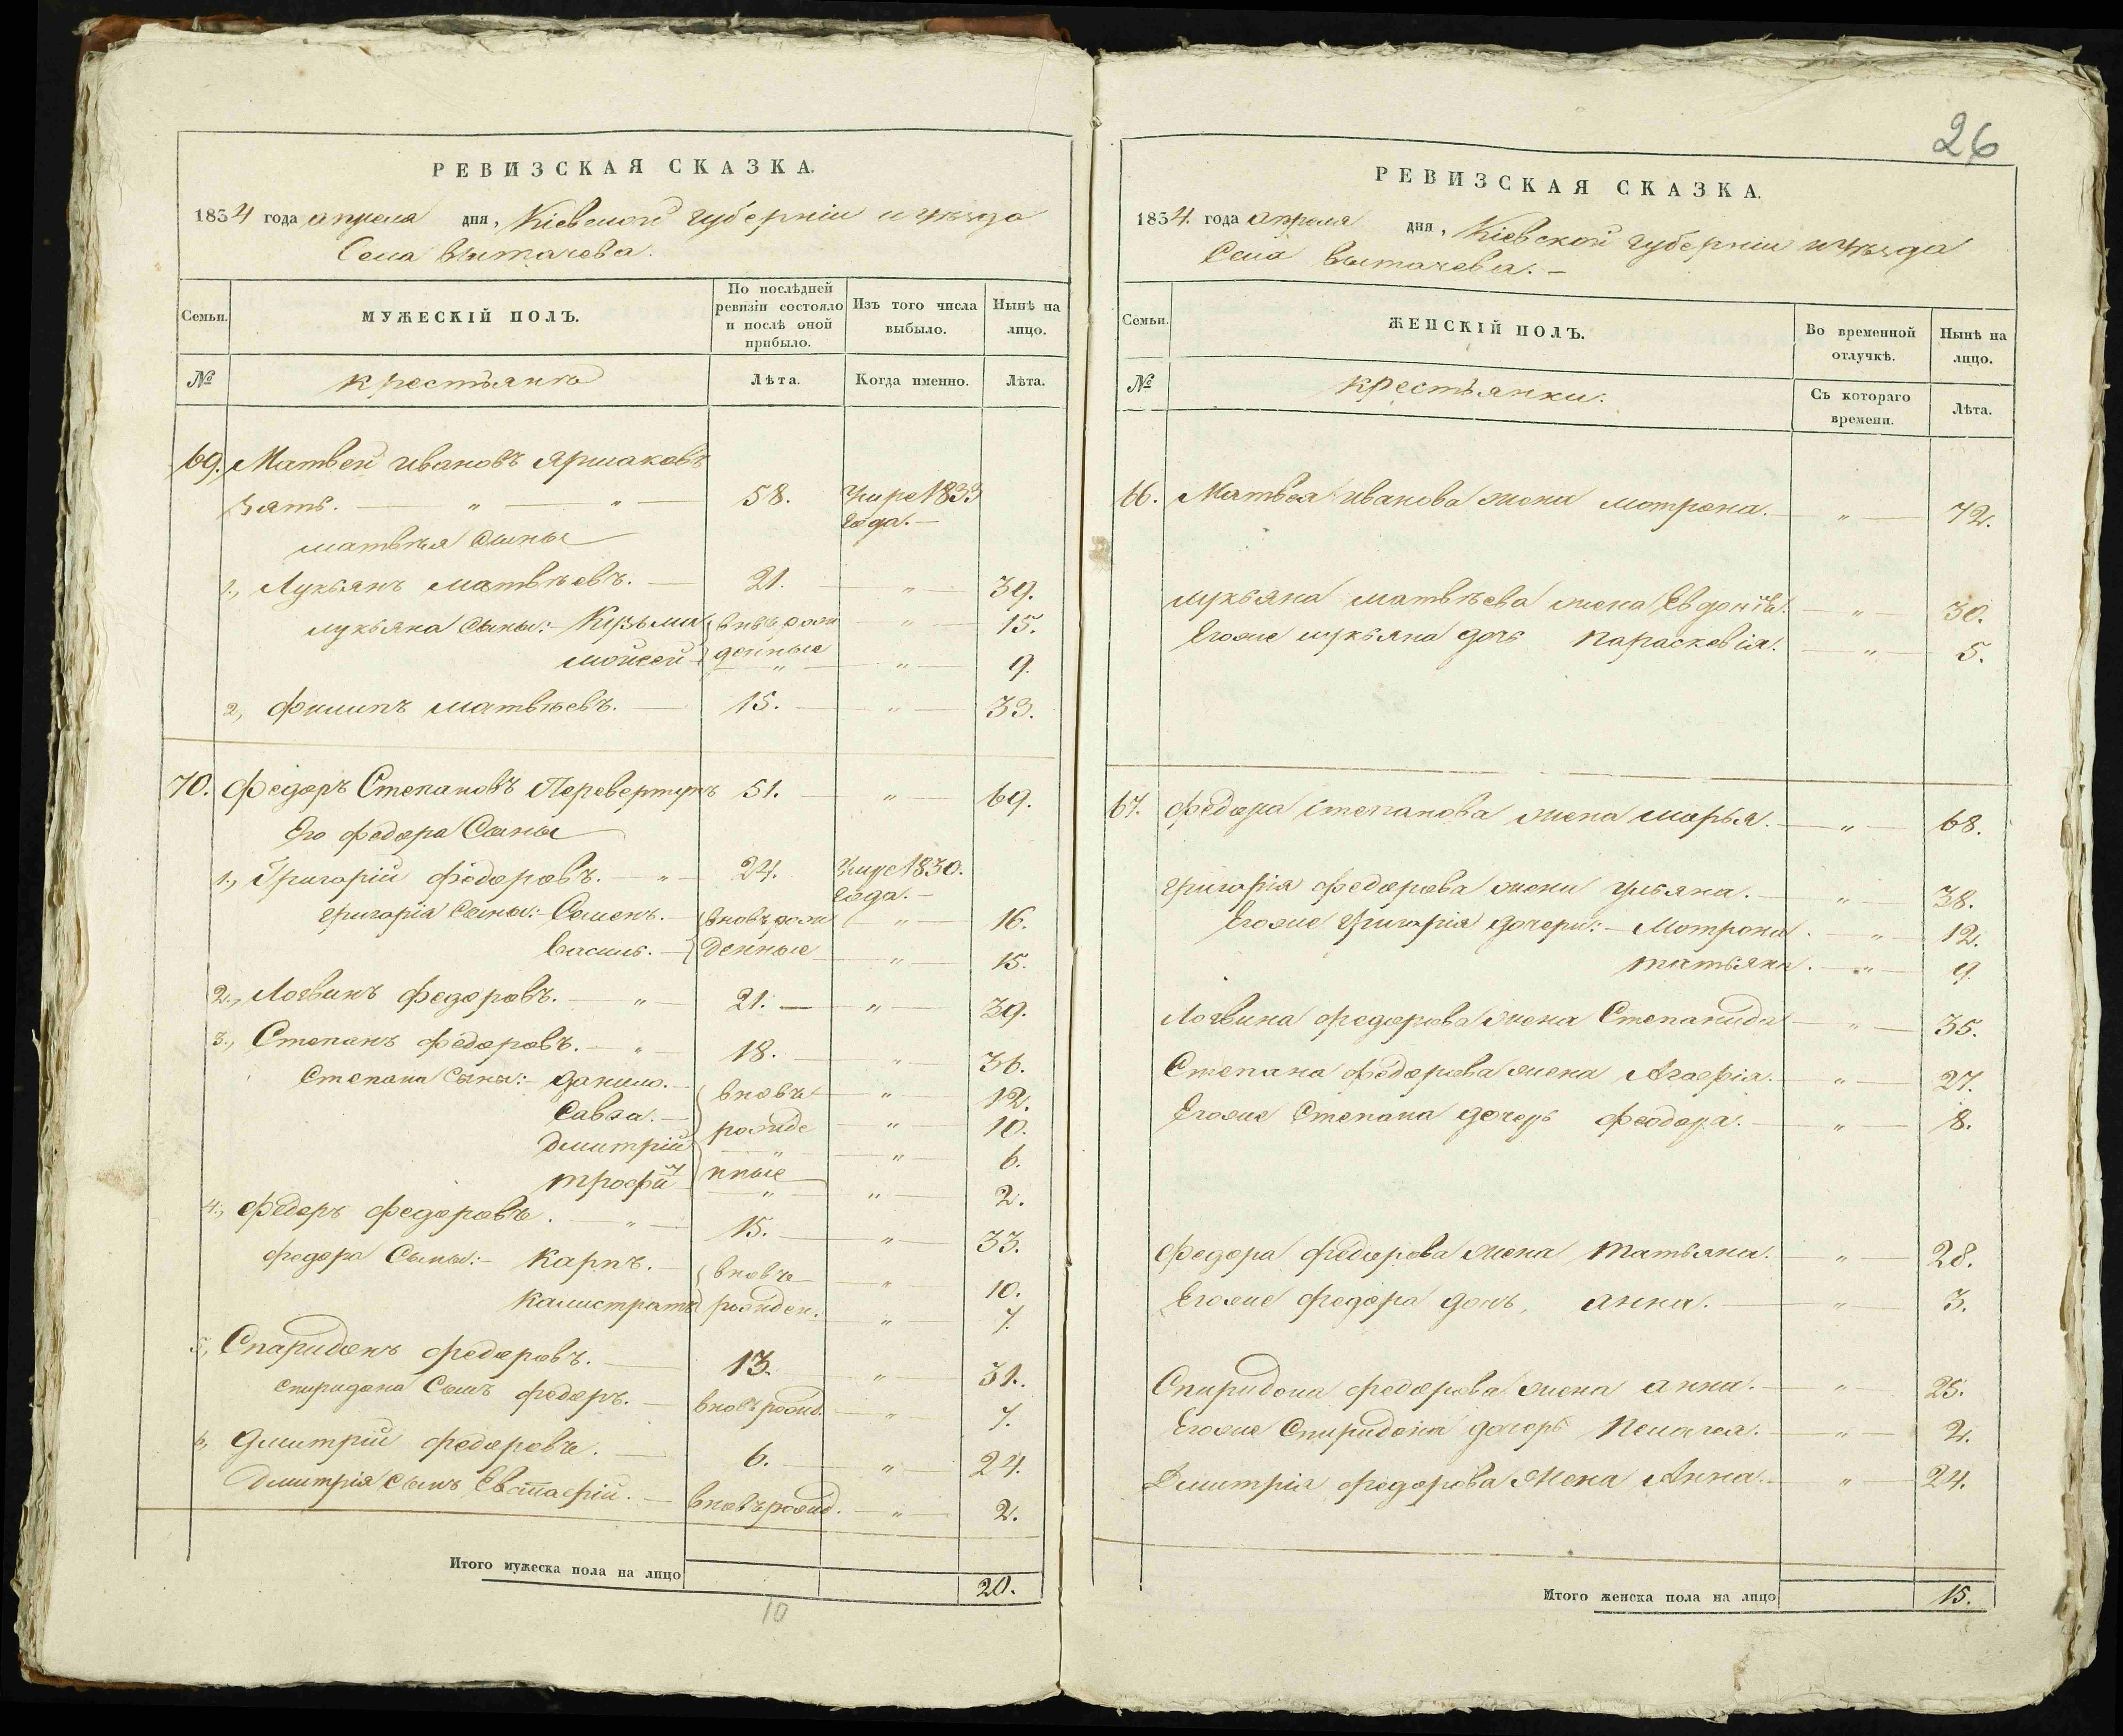 РЕВИЗСКАЯ СКАЗКА.
1834 года апреля дня, Кіевской губерніи и уѣзда
Села Вытачева.
Семьи.
МУЖЕСКІЙ ПОЛЪ.
По послѣдней ревизіи состояло и послѣ оной прибыло.
Изъ того числа выбыло.
Нынѣ на лицо.
№
крестьянъ
Лѣта.
Когда именно.
Лѣта.
69. Матвей Ивановъ
Зять. — " — " — 58. умре 1833
года. —
Матвѣя сыны
1., Лукьянъ Матвѣевъ. — 21. — " — 39.
Лукьяна сыны:- Кузьма вновь рож — " — 15.
Мойсей денные — " — 9.
2, Филипъ Матвѣевъ. — 15. — " — 33.
70. Федоръ Степановъ Перевертунъ 51. — " — 69.
Его Федора сыны
1., Григорій Федоровъ. — " — 24. умре 1830.
года. —
Григорія сыны:- Семенъ. — вновь рож — " — 16.
Василь. — денные — " — 15.
2., Логвинъ Федоровъ. — " — 21. — " — 39.
3., Степанъ Федоровъ. — " — 18. — " — 36.
Степана сыны:- Данило. — вновь — " — 12.
Савва. — рожде — " — 10.
Дмитрій — " — " — 6.
Трофим нные — " — " — 2.
4., Федоръ Федоровъ. — " — 15. — " — 33.
Федора сыны:- Карпъ. — вновь — " — 10.
Калистратъ рожден. — " — 7.
5, Спаридонъ Федоровъ. — 13. — " — 31.
Спиридона сынъ Федоръ. — вновь рожд. — " — 7.
6, Дмитрій Федоровъ. — 6. — " — 24.
Дмитрія сынъ Евстафій. — вновь рожд. — " — 2.
Итого мужеска пола на лицо 20.
10
26
РЕВИЗСКАЯ СКАЗКА.
1834. года апреля дня, Кіевской губерніи и уѣзда
Села Вытачева. —
Семьи.
ЖЕНСКІЙ ПОЛЪ.
Во временной отлучкѣ.
Нынѣ на лицо.
№
крестьянки.
Съ котораго времени.
Лѣта.
66. Матвея Иванова жена Мотрона. — " — 72.
Лукьяна Матвѣева жена Евдокія. — " — 30.
Егоже Лукьяна дочь Парасковія. — " — 5.
67. Федора Степанова жена Марья. — " — 68.
Григорія Федорова жена Ульяна. — " — 38.
Егоже Григорія дочери:- Мотрона. — " — 12.
Татьяна. — " — 9.
Логвина Федорова жена Степанида — " — 35.
Степана Федорова жена Агафія. — " — 27.
Егоже Степана дочерь Феодора. — " — 8.
Федора Федорова жена Татьяна. — " — 28.
Егоже Федора дочь, Анна. — " — 3.
Спиридона Федорова жена Анна. — " — 25.
Егоже Спиридона дочерь Пелагея. — " — 2.
Дмитрія Федорова жена Анна. — " — 24.
Итого женска пола на лицо 15.